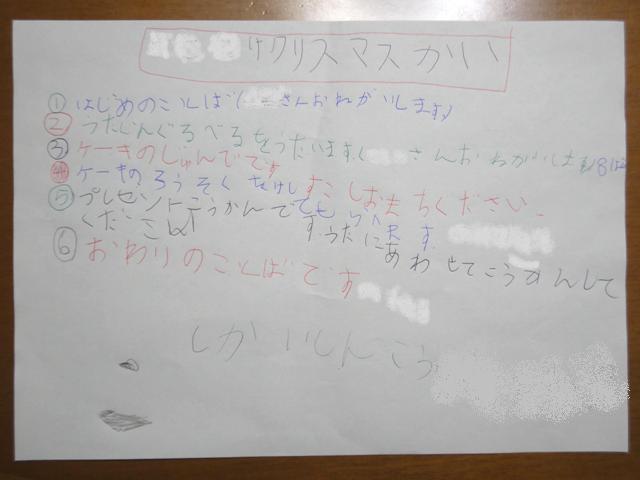 けクリスマスかい
① はじめのことば(さんおねがいします)
② うたじんぐるべるをうたいます(さんおねがいします)
③ ケーキのじゅんでです
④ ケーキのろうそく すこしおまちください
⑤ プレゼントこうかんで
すうたにあわせてこうかんして
ください
⑥ おわりのことばです
しかいしんこう